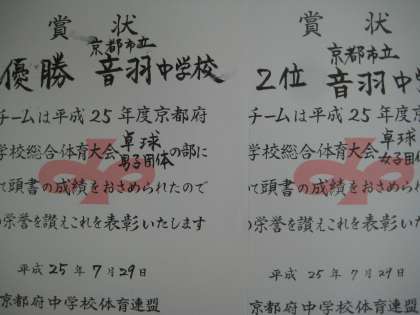 賞状
京都市立
優勝 音羽中学校
チームは平成25年度京都府
学校総合体育大会卓球男子団体の部に
て頭書の成績をおさめられたので
の栄誉を讃えこれを表彰いたします
平成25年7月29日
京都府中学校体育連盟
賞状
京都市立
2位 音羽中学
チームは平成25年
学校総合体育大会卓球女子団体
て頭書の成績をおさめられ
の栄誉を讃えこれを表彰
平成25年7月29日
京都府中学校体育連